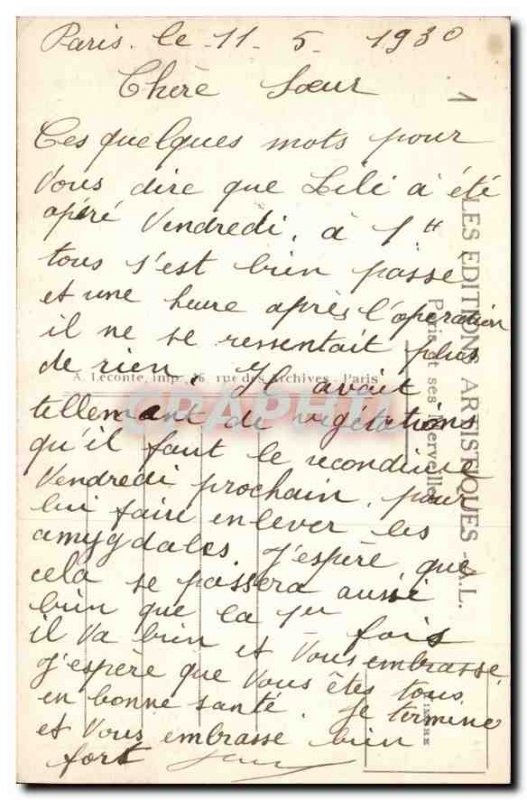 Paris. le 11. 5. 1930
Chère Sœur
1
Ces quelques mots pour
vous dire que Lili a été
opéré Vendredi, à 1 H
tous s'est bien passé
et une heure après l'operation
il ne se ressentait plus
de rien. Il avait
tellement de vegetations
qu'il faut le reconduire
Vendredi prochain, pour
lui faire enlever les
amygdales. J'espère que
cela se passera aussi
bien que la 1re fois
il va bien et vous embrasse
J'espère que vous êtes tous
en bonne santé. Je termine
et vous embrasse bien
fort
LES ÉDITIONS ARTISTIQUES - A.L.
Paris et ses Merveilles
A. Leconte, imp. 16 rue des Archives. Paris
CRAPHIL
TIMBRE